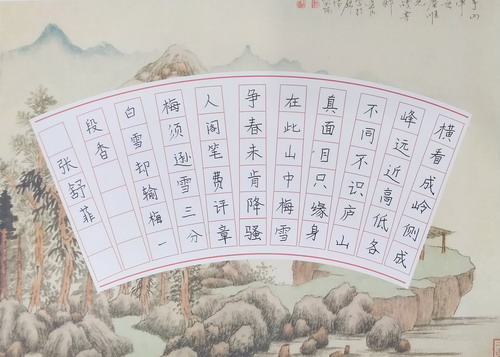 横看成岭侧成
峰远近高低各
不同不识庐山
真面目只缘身
在此山中梅雪
争春未肯降骚
人阁笔费评章
梅须逊雪三分
白雪却输梅一
段香
张舒菲